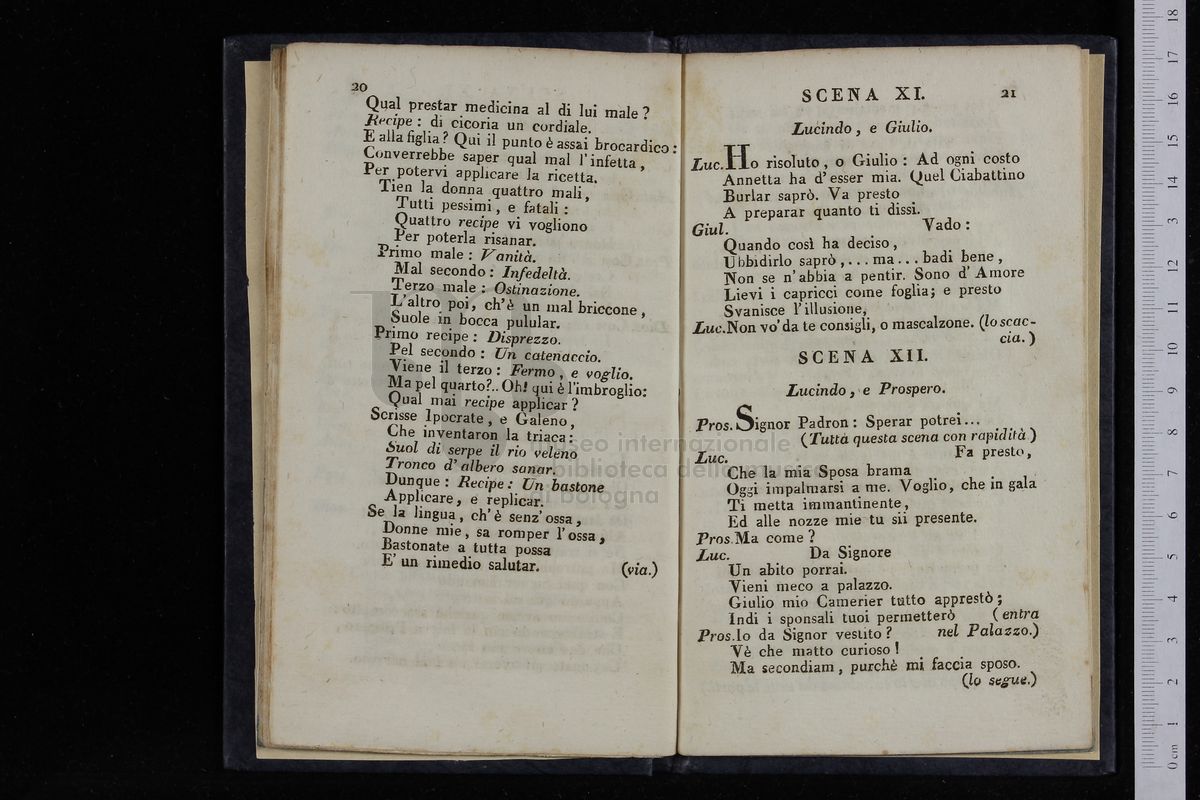 20
Qual prestar medicina al di lui male?
Recipe: di cicoria un cordiale.
E alla figlia? Qui il punto è assai brocardico:
Converrebbe saper qual mal l'infetta,
Per potervi applicare la ricetta.
Tien la donna quattro mali,
Tutti pessimi, e fatali:
Quattro recipe vi vogliono
Per poterla risanar.
Primo male: Vanità.
Mal secondo: Infedeltà.
Terzo male: Ostinazione.
L'altro poi, ch'è un mal briccone,
Suole in bocca pulular.
Primo recipe: Disprezzo.
Pel secondo: Un catenaccio.
Viene il terzo: Fermo, e voglio.
Ma pel quarto?.. Oh! qui è l'imbroglio:
Qual mai recipe applicar?
Scrisse Ipocrate, e Galeno,
Che inventaron la triaca:
Suol di serpe il rio veleno
Tronco d'albero sanar.
Dunque: Recipe: Un bastone
Applicare, e replicar.
Se la lingua, ch'è senz'ossa,
Donne mie, sa romper l'ossa,
Bastonate a tutta possa
E' un rimedio salutar. (via.)
SCENA XI. 21
Lucindo, e Giulio.
Luc. Ho risoluto, o Giulio: Ad ogni costo
Annetta ha d'esser mia. Quel Ciabattino
Burlar saprò. Va presto
A preparar quanto ti dissi.
Giul. Vado:
Quando così ha deciso,
Ubbidirlo saprò,... ma... badi bene,
Non se n'abbia a pentir. Sono d'Amore
Lievi i capricci come foglia; e presto
Svanisce l'illusione,
Luc. Non vo' da te consigli, o mascalzone. (lo scac-
cia.)
SCENA XII.
Lucindo, e Prospero.
Pros. Signor Padron: Sperar potrei...
(Tutta questa scena con rapidità)
Luc. Fa presto,
Che la mia Sposa brama
Oggi impalmarsi a me. Voglio, che in gala
Ti metta immantinente,
Ed alle nozze mie tu sii presente.
Pros. Ma come?
Luc. Da Signore
Un abito porrai.
Vieni meco a palazzo.
Giulio mio Camerier tutto apprestò;
Indi i sponsali tuoi permetterò (entra
Pros. Io da Signor vestito? nel Palazzo.)
Vè che matto curioso!
Ma secondiam, purchè mi faccia sposo.
(lo segue.)
museo internazionale
e biblioteca della musica
di bologna
0 cm 1 2 3 4 5 6 7 8 9 10 11 12 13 14 15 16 17 18